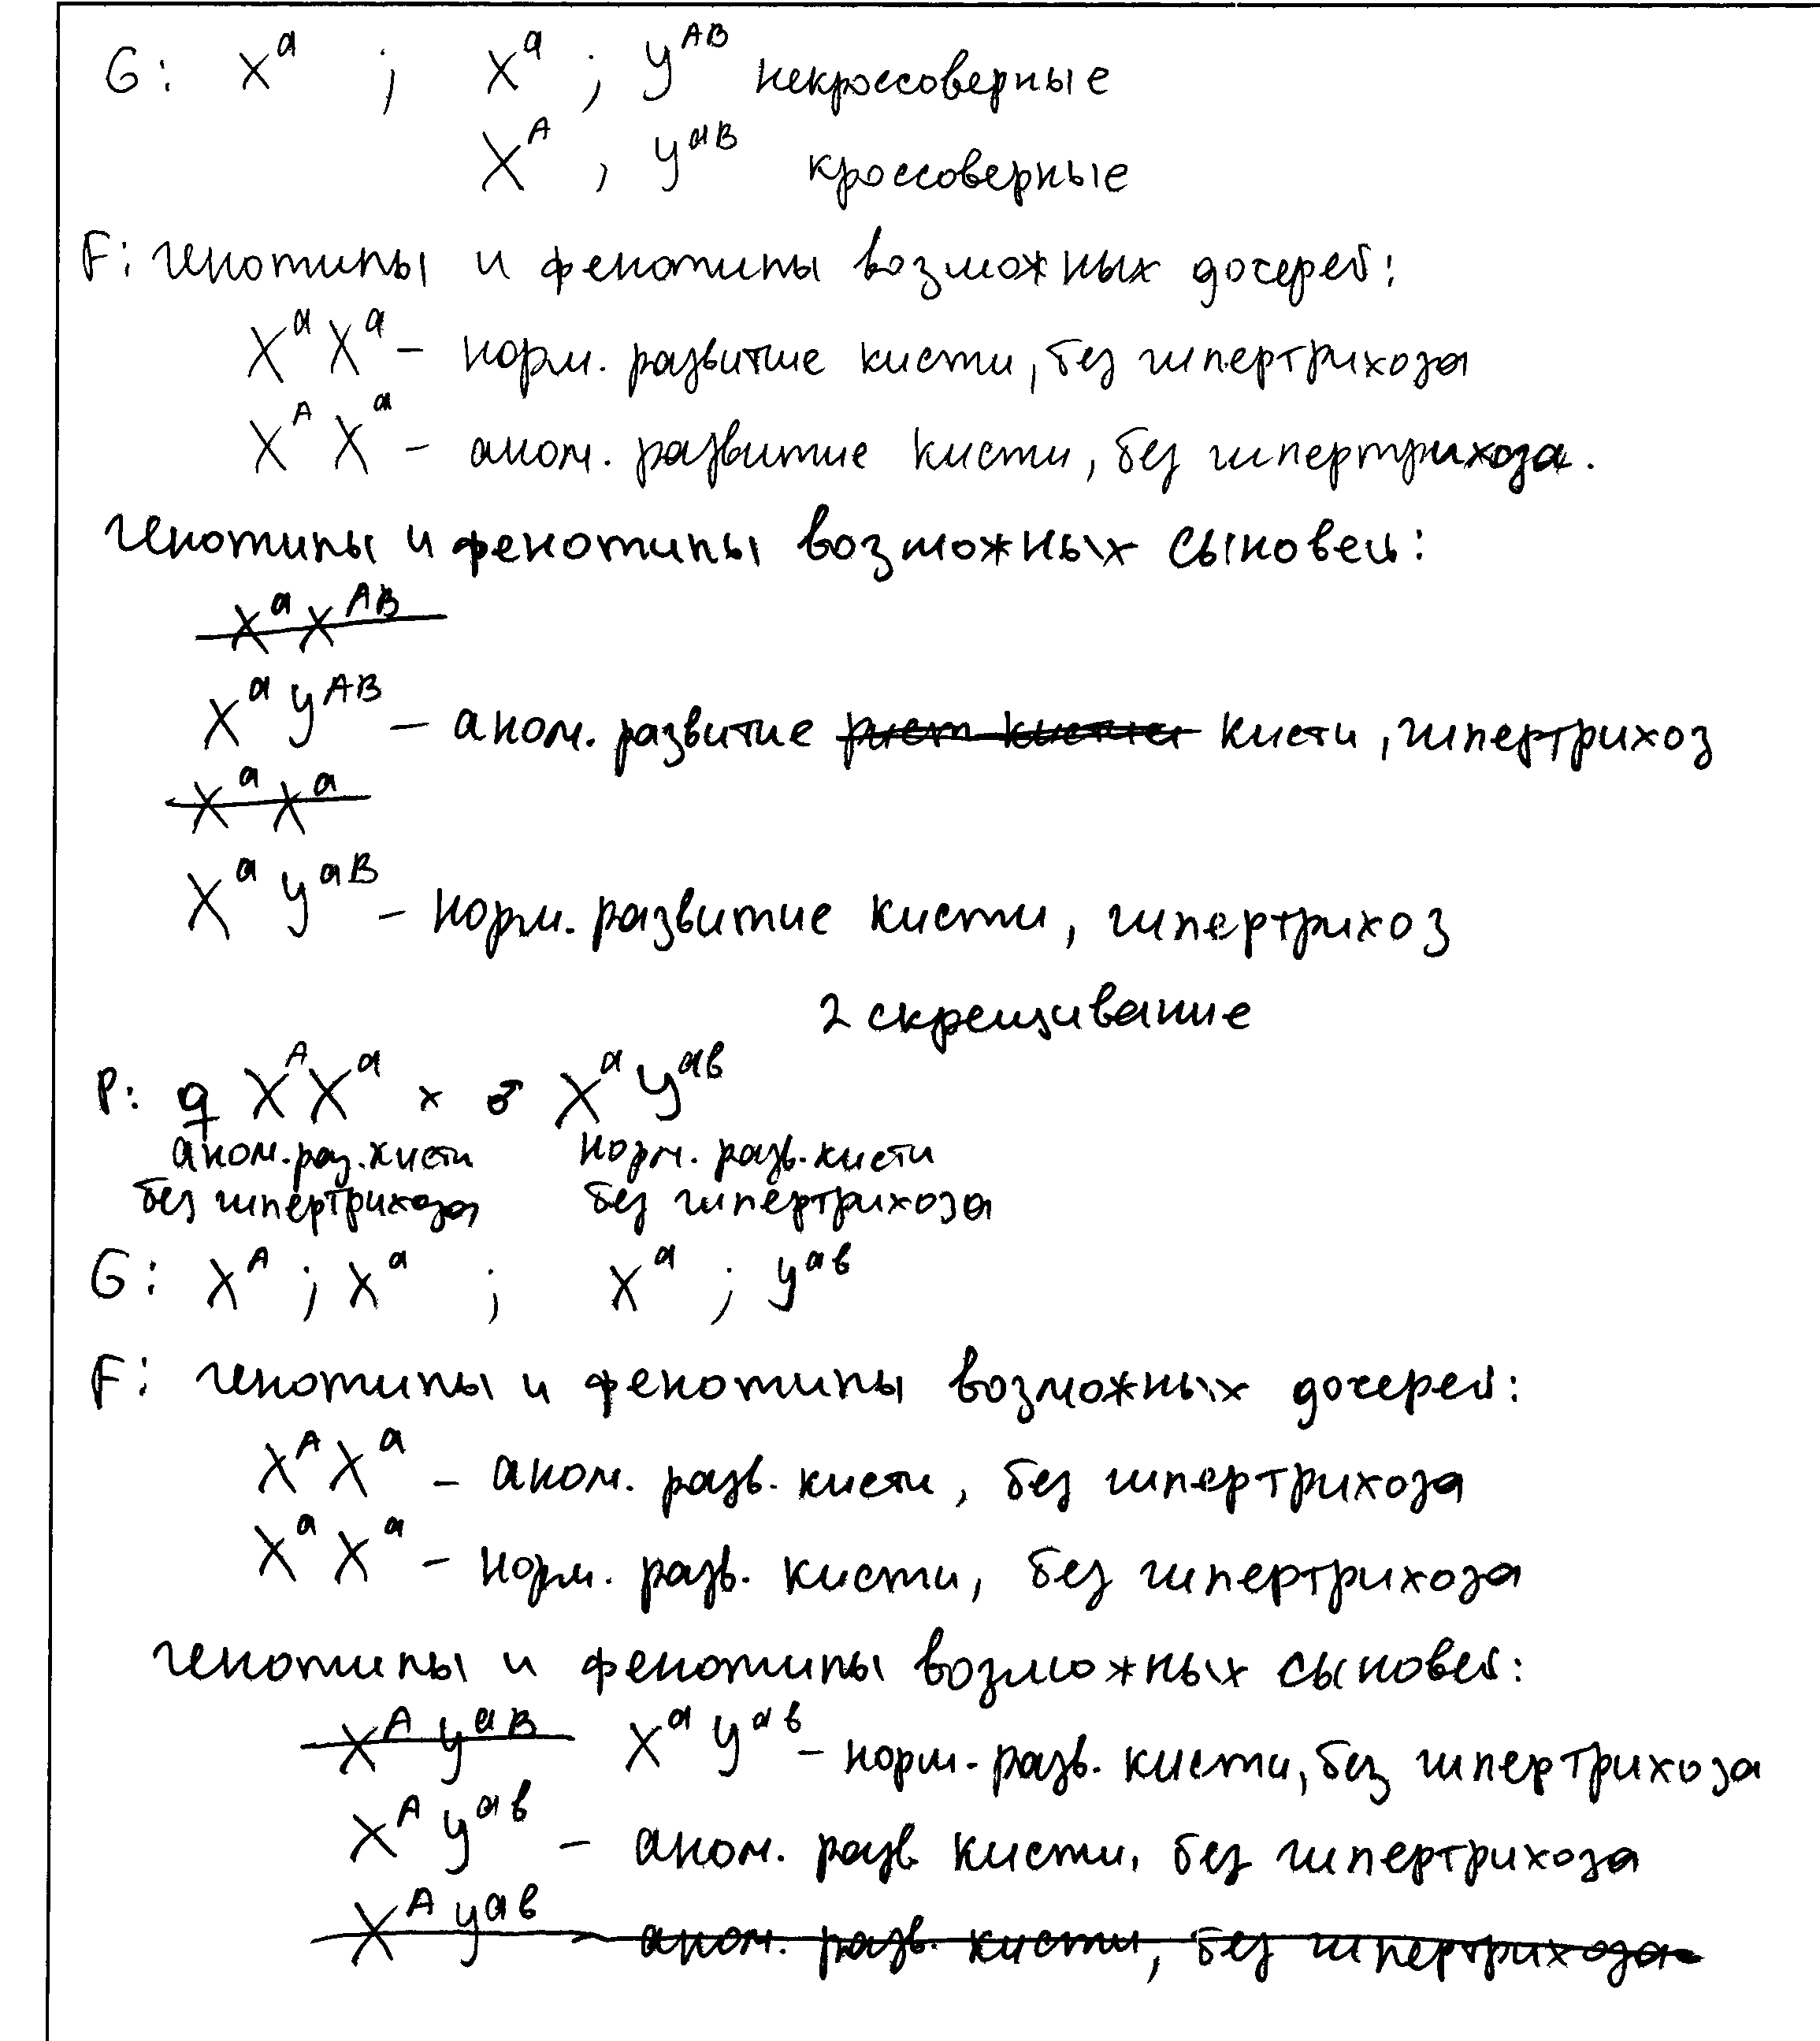 G: Xᵃ ; Xᵃ ; yᴬᴮ некроссоверные
Xᴬ , yᵃᴮ кроссоверные
F: генотипы и фенотипы возможных дочерей:
XᵃXᵃ – норм. развитие кисти, без гипертрихоза
XᴬXᵃ – аном. развитие кисти, без гипертрихоза.
генотипы и фенотипы возможных сыновей:
XᵃXᴬᴮ
Xᵃyᴬᴮ – аном. развитие кисти, гипертрихоз
XᵃXᵃ
Xᵃyᵃᴮ – норм. развитие кисти, гипертрихоз
2 скрещивание
P: ♀ XᴬXᵃ × ♂ Xᵃyᵃᵇ
аном. раз. кисти норм. разв. кисти
без гипертрихоза без гипертрихоза
G: Xᴬ ; Xᵃ ; Xᵃ ; yᵃᵇ
F: генотипы и фенотипы возможных дочерей:
XᴬXᵃ – аном. разв. кисти, без гипертрихоза
XᵃXᵃ – норм. разв. кисти, без гипертрихоза
генотипы и фенотипы возможных сыновей:
Xᴬyᵃᴮ Xᵃyᵃᵇ – норм. разв. кисти, без гипертрихоза
Xᴬyᵃᵇ – аном. разв кисти, без гипертрихоза
Xᴬyᵃᵇ – аном. разв. кисти, без гипертрихоза